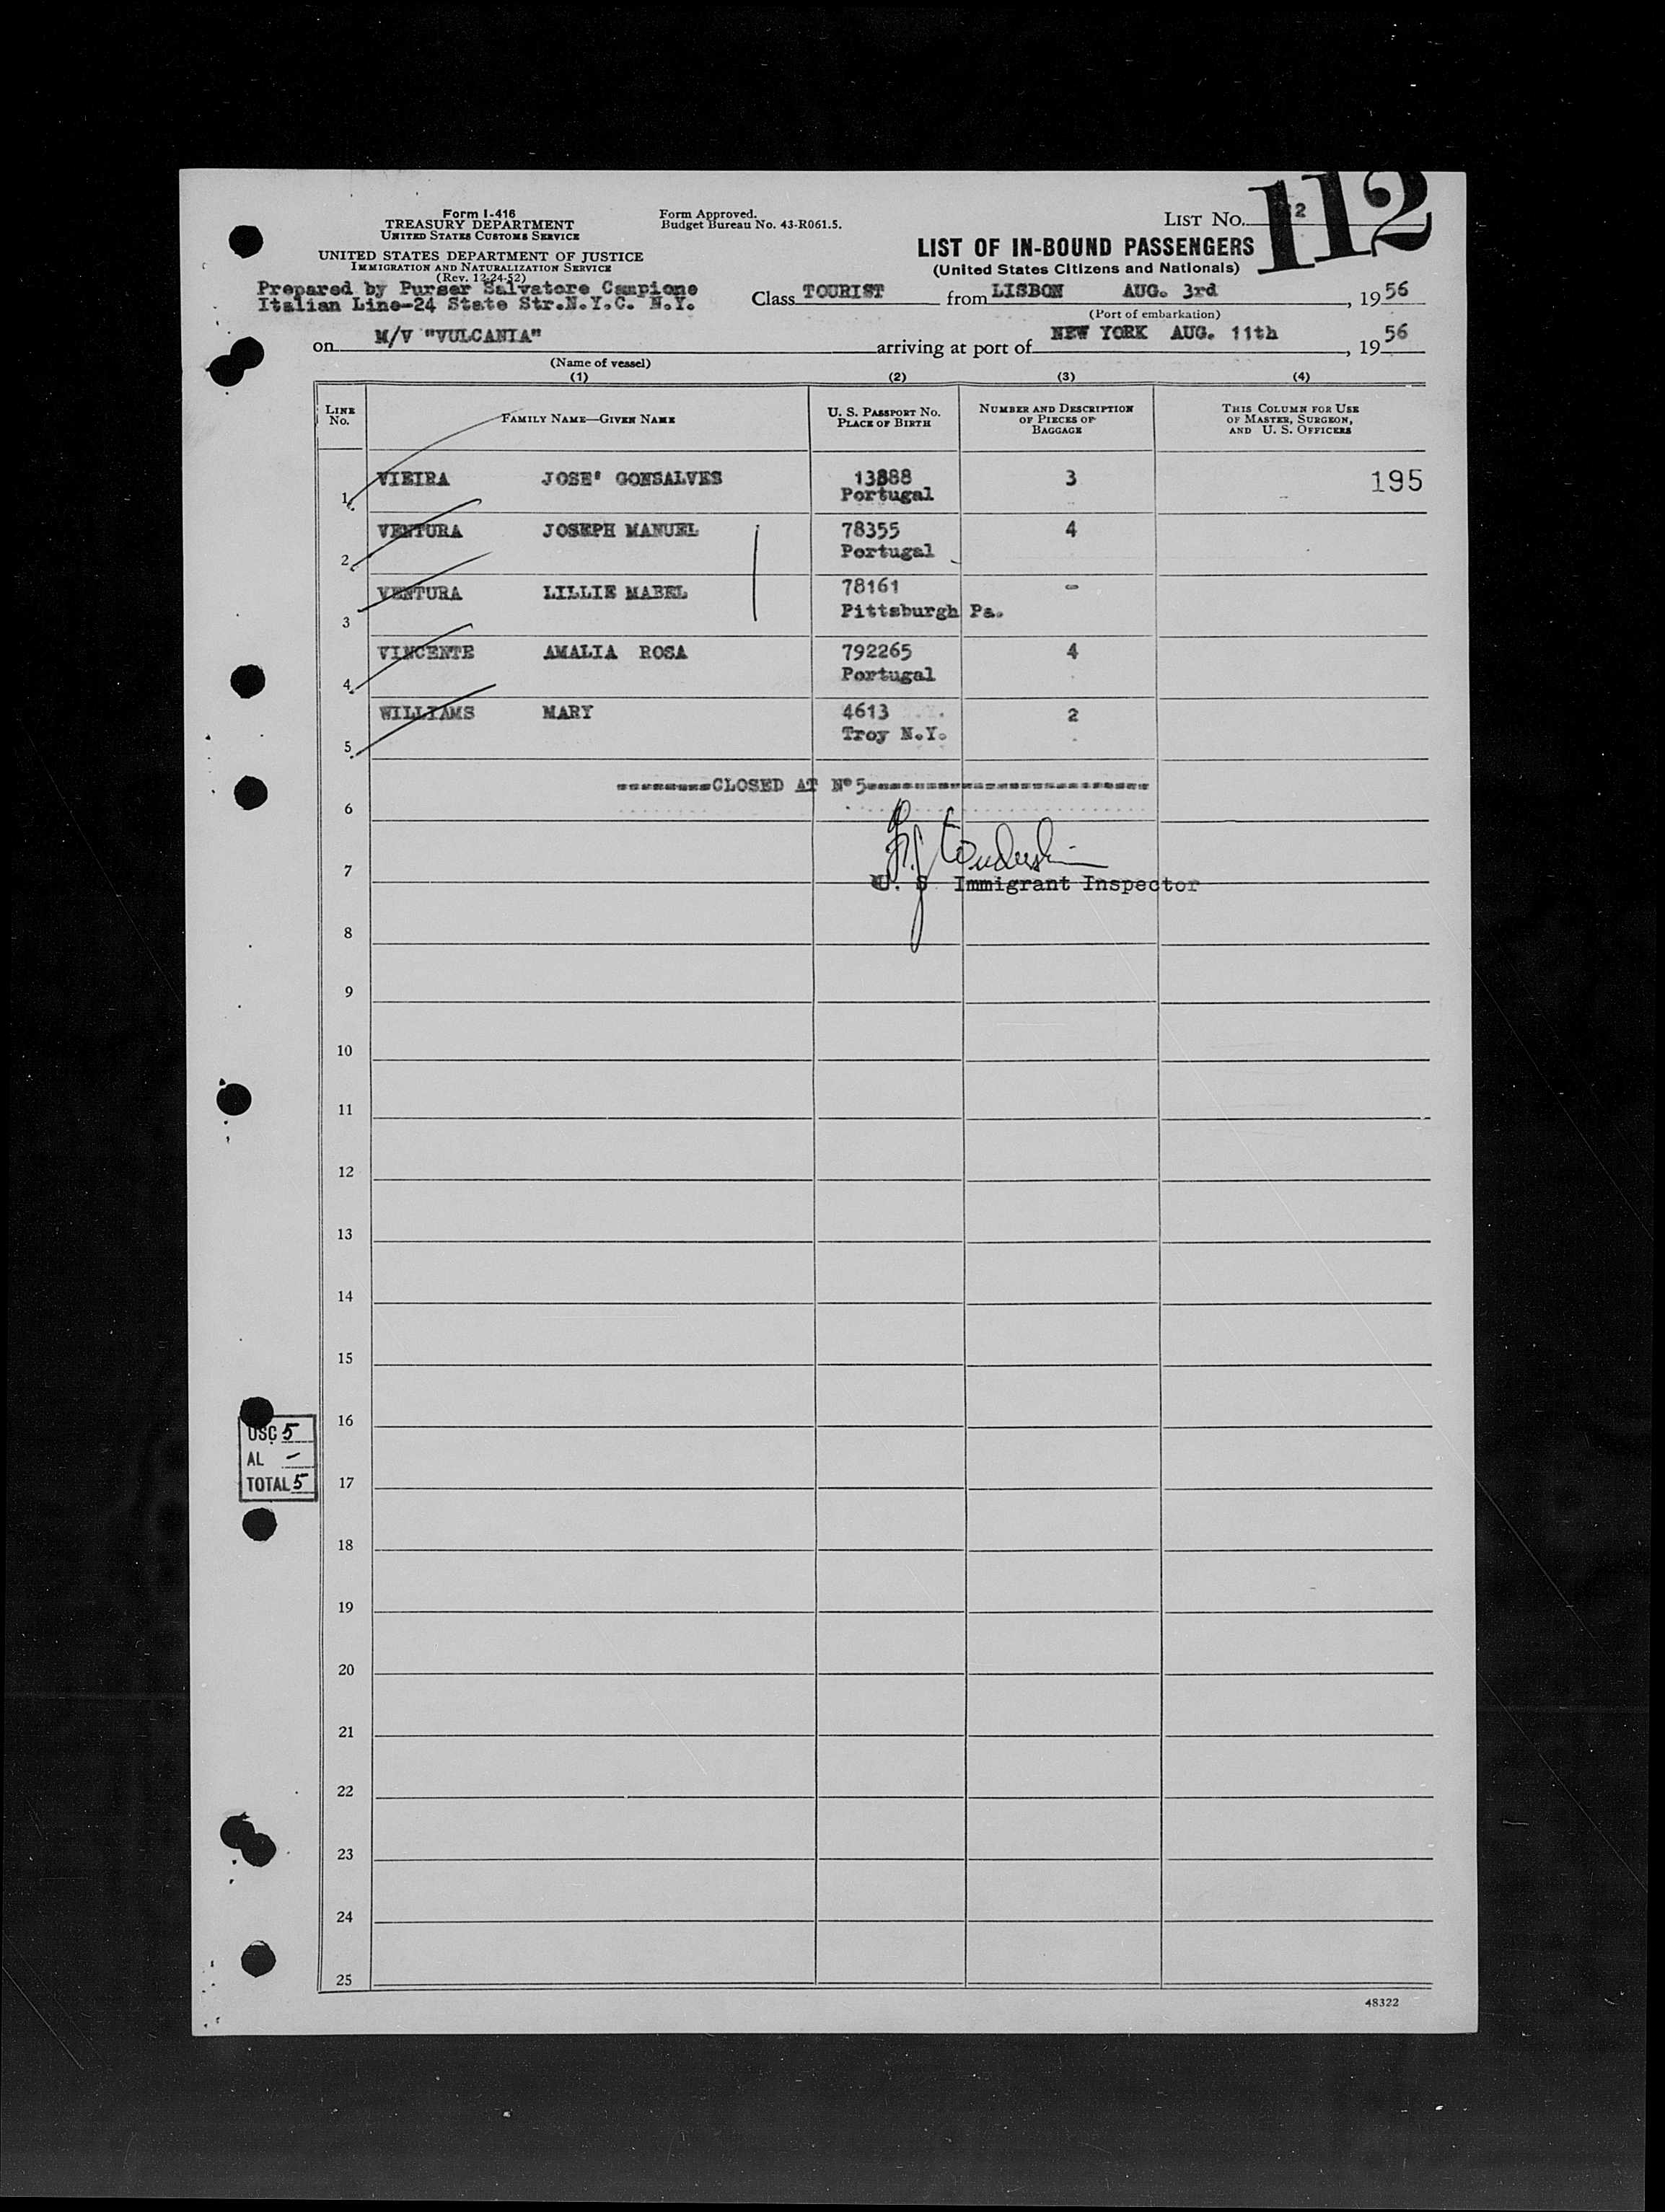 112
Form I-416
TREASURY DEPARTMENT
UNITED STATES CUSTOMS SERVICE
UNITED STATES DEPARTMENT OF JUSTICE
IMMIGRATION AND NATURALIZATION SERVICE
(Rev. 12-24-52)
Prepared by Purser Salvatore Campione
Italian Line-24 State Str.N.Y.C. N.Y.
Form Approved.
Budget Bureau No. 43-R061.5.
LIST NO. 2
LIST OF IN-BOUND PASSENGERS
(United States Citizens and Nationals)
Class TOURIST from LISBON AUG. 3rd, 1956
(Port of embarkation)
on M/V "VULCANIA" arriving at port of NEW YORK AUG. 11th, 1956
(Name of vessel)
(1) (2) (3) (4)
LINE No. FAMILY NAME—GIVEN NAME U. S. PASSPORT NO. PLACE OF BIRTH NUMBER AND DESCRIPTION OF PIECES OF BAGGAGE THIS COLUMN FOR USE OF MASTER, SURGEON, AND U. S. OFFICERS
1 VIEIRA JOSE' GONSALVES 13888 3 195
Portugal
2 VENTURA JOSEPH MANUEL 78355 4
Portugal
3 VENTURA LILLIE MABEL 78161 -
Pittsburgh Pa.
4 VINCENTE AMALIA ROSA 792265 4
Portugal
5 WILLIAMS MARY 4613 2
Troy N.Y.
6 CLOSED AT Nº 5
7 U. S. Immigrant Inspector
8
9
10
11
12
13
14
15
16
17
18
19
20
21
22
23
24
25
USC 5
AL -
TOTAL 5
48322